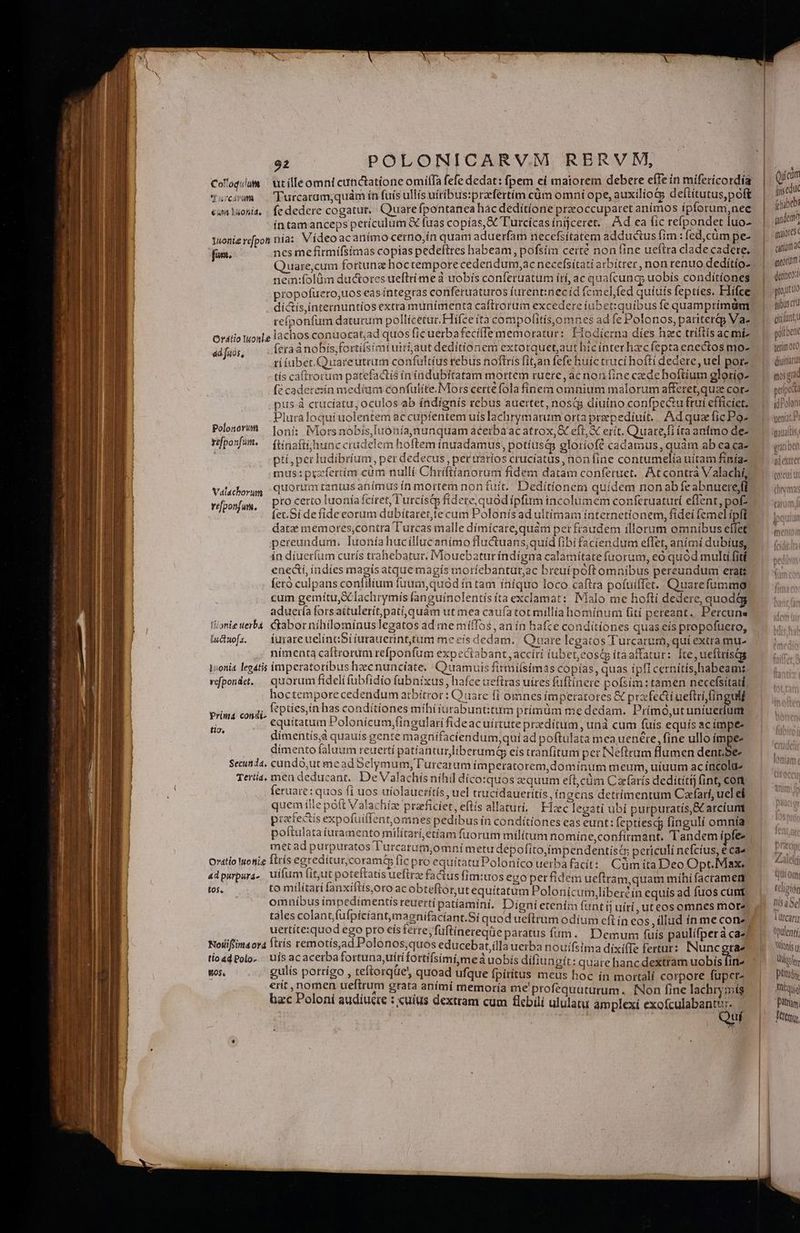 92 POLONICARVM RERVM,
Colloquium utille omni cunctatione omissa sese dedat: spem ei maiorem debere esse in misericordia
Turcarum Turcarum, quàm in suis ullis uiribus: præsertim cùm omni ope, auxilioq; destitutus, post
cum Iuonia. se dedere cogatur. Quare spontanea hac deditione præoccuparet animos ipsorum, nec
in tam anceps periculum & suas copias, & Turcicas inijceret. Ad ea sic respondet Iuo-
Iuoniæ respon nia: Video ac animo cerno, in quam aduersam necessitatem adductus sim: sed, cùm pe-
sum. nes me firmissimas copias pedestres habeam, possim certè non sine uestra clade cadere.
Quare, cum fortunæ hoc tempore cedendum, ac necessitati arbitrer, non renuo deditio-
nem: solùm ductores uestri me à uobis conseruatum iri, ac quascunq; uobis conditiones
proposuero, uos eas integras conseruaturos iurent: nec id semel, sed quiuis septies. Hisce
dictis, internuntios extra munimenta castrorum excedere iubet: quibus se quamprimùm
responsum daturum pollicetur. Hisce ita compositis, omnes ad se Polonos, pariterq; Va-
Oratio Iuoniæ lachos conuocat, ad quos sic uerba fecisse memoratur: Hodierna dies hæc tristis ac mi-
ad suos, sera à nobis, fortissimi uiri, aut deditionem extorquet, aut hic inter hæc septa enectos mo-
ri iubet. Quare utrum consultius rebus nostris sit, an sese huic truci hosti dedere, uel por-
tis castrorum patefactis in indubitatam mortem ruere, ac non sine cæde hostium glorio-
sè cadere: in medium consulite. Mors certè sola finem omnium malorum afferet, quæ cor-
pus à cruciatu, oculos ab indignis rebus auertet, nosq; diuino conspectu frui efficiet.
Plura loqui uolentem ac cupientem uis lachrymarum orta præpediuit. Ad quæ sic Po-
Polonorum loni: Mors nobis, Iuonia, nunquam acerba ac atrox, & est, & erit. Quare, si ita animo de-
responsum. stinasti, hunc crudelem hostem inuadamus, potiusq; gloriosè cadamus, quàm ab ea ca-
pti, per ludibrium, per dedecus, per uarios cruciatus, non sine contumelia uitam finia-
mus: præsertim cùm nulli Christianorum fidem datam conseruet. At contrà Valachi,
Valachorum quorum tantus animus in mortem non fuit. Deditionem quidem non ab se abnuere, si
responsum. pro certo Iuonia sciret, Turcisq; fidere, quòd ipsum incolumem conseruaturi essent, pos-
set. Si de fide eorum dubitaret, se cum Polonis ad ultimam internetionem, fidei semel ipsi
datæ memores, contra Turcas malle dimicare, quàm per fraudem illorum omnibus esset
pereundum. Iuonia huc illuc animo fluctuans, quid sibi faciendum esset, animi dubius,
in diuersum curis trahebatur. Mouebatur indigna calamitate suorum, eò quòd multi siti
enecti, indies magis atque magis moriebantur, ac breui pòst omnibus pereundum erat:
serò culpans consilium suum, quòd in tam iniquo loco castra posuisset. Quare summo
cum gemitu, & lachrymis sanguinolentis ita exclamat: Malo me hosti dedere, quodq;
aduersa fors attulerit, pati, quàm ut mea causa tot millia hominum siti pereant. Percun-
Iuoniæ uerba ctabor nihilominus legatos ad me missos, an in hasce conditiones quas eis proposuero,
luctuosa. iurare uelint: Si iurauerint, tum me eis dedam. Quare legatos Turcarum, qui extra mu-
nimenta castrorum responsum expectabant, acciri iubet, eosq; ita affatur: Ite, uestrisq;
Iuonia legatis imperatoribus hæc nunciate. Quamuis firmissimas copias, quas ipsi cernitis, habeam:
respondet. quorum fideli subsidio subnixus, hasce uestras uires sustinere possim: tamen necessitati,
hoc tempore cedendum arbitror: Quare si omnes imperatores & præfecti uestri, singuli
Prima condi- septies, in has conditiones mihi iurabunt: tum primùm me dedam. Primò, ut uniuersum
tio. equitatum Polonicum, singulari fide ac uirtute præditum, unà cum suis equis ac impe-
dimentis, à quauis gente magnifaciendum, qui ad postulata mea uenêre, sine ullo impe-
dimento saluum reuerti patiantur, liberumq; eis transitum per Nestrum flumen dent. Se-
Secunda. cundò, ut me ad Selymum, Turcarum imperatorem, dominum meum, uiuum ac incolu-
Tertia. men deducant. De Valachis nihil dico: quos æquum est, cùm Cæsaris dedititij sint, con-
seruare: quos si uos uiolaueritis, uel trucidaueritis, ingens detrimentum Cæsari, uel ei
quem ille pòst Valachiæ præficiet, estis allaturi. Hæc legati ubi purpuratis, & arcium
præfectis exposuissent, omnes pedibus in conditiones eas eunt: septiesq; singuli omnia
postulata iuramento militari, etiam suorum militum nomine, confirmant. Tandem ipse-
met ad purpuratos Turcarum, omni metu deposito, impendentisq; periculi nescius, è ca-
Oratio Iuoniæ stris egreditur, coramq; sic pro equitatu Polonico uerba facit: Cùm ita Deo Opt. Max.
ad purpura- uisum sit, ut potestatis uestræ factus sim: uos ego per fidem uestram, quam mihi sacramen
tos. to militari sanxistis, oro ac obtestor, ut equitatum Polonicum, liberè in equis ad suos cum
omnibus impedimentis reuerti patiamini. Digni etenim sunt ij uiri, ut eos omnes mor-
tales colant, suspiciant, magnifaciant. Si quod uestrum odium est in eos, illud in me con-
uertite: quod ego pro eis ferre, sustinereq́ue paratus sum. Demum suis paulisper à ca-
Nouissima ora stris remotis, ad Polonos, quos educebat, illa uerba nouissima dixisse fertur: Nunc gra-
tio ad Polo- uis ac acerba fortuna, uiri fortissimi, me à uobis disiungit: quare hanc dextram uobis sin-
nos. gulis porrigo, testorq́ue, quoad usque spiritus meus hoc in mortali corpore super-
erit, nomen uestrum grata animi memoria me prosequuturum. Non sine lachrymis
hæc Poloni audiuêre: cuius dextram cum flebili ululatu amplexi exosculabantur.
Qui